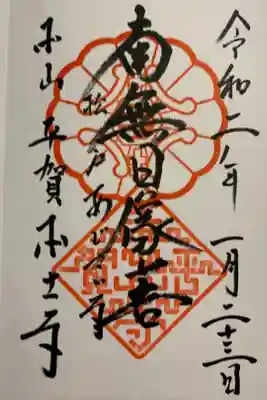 令和二年 一月二十三日
南無日像菩薩
松戸あじさい寺
本山 平賀 本土寺